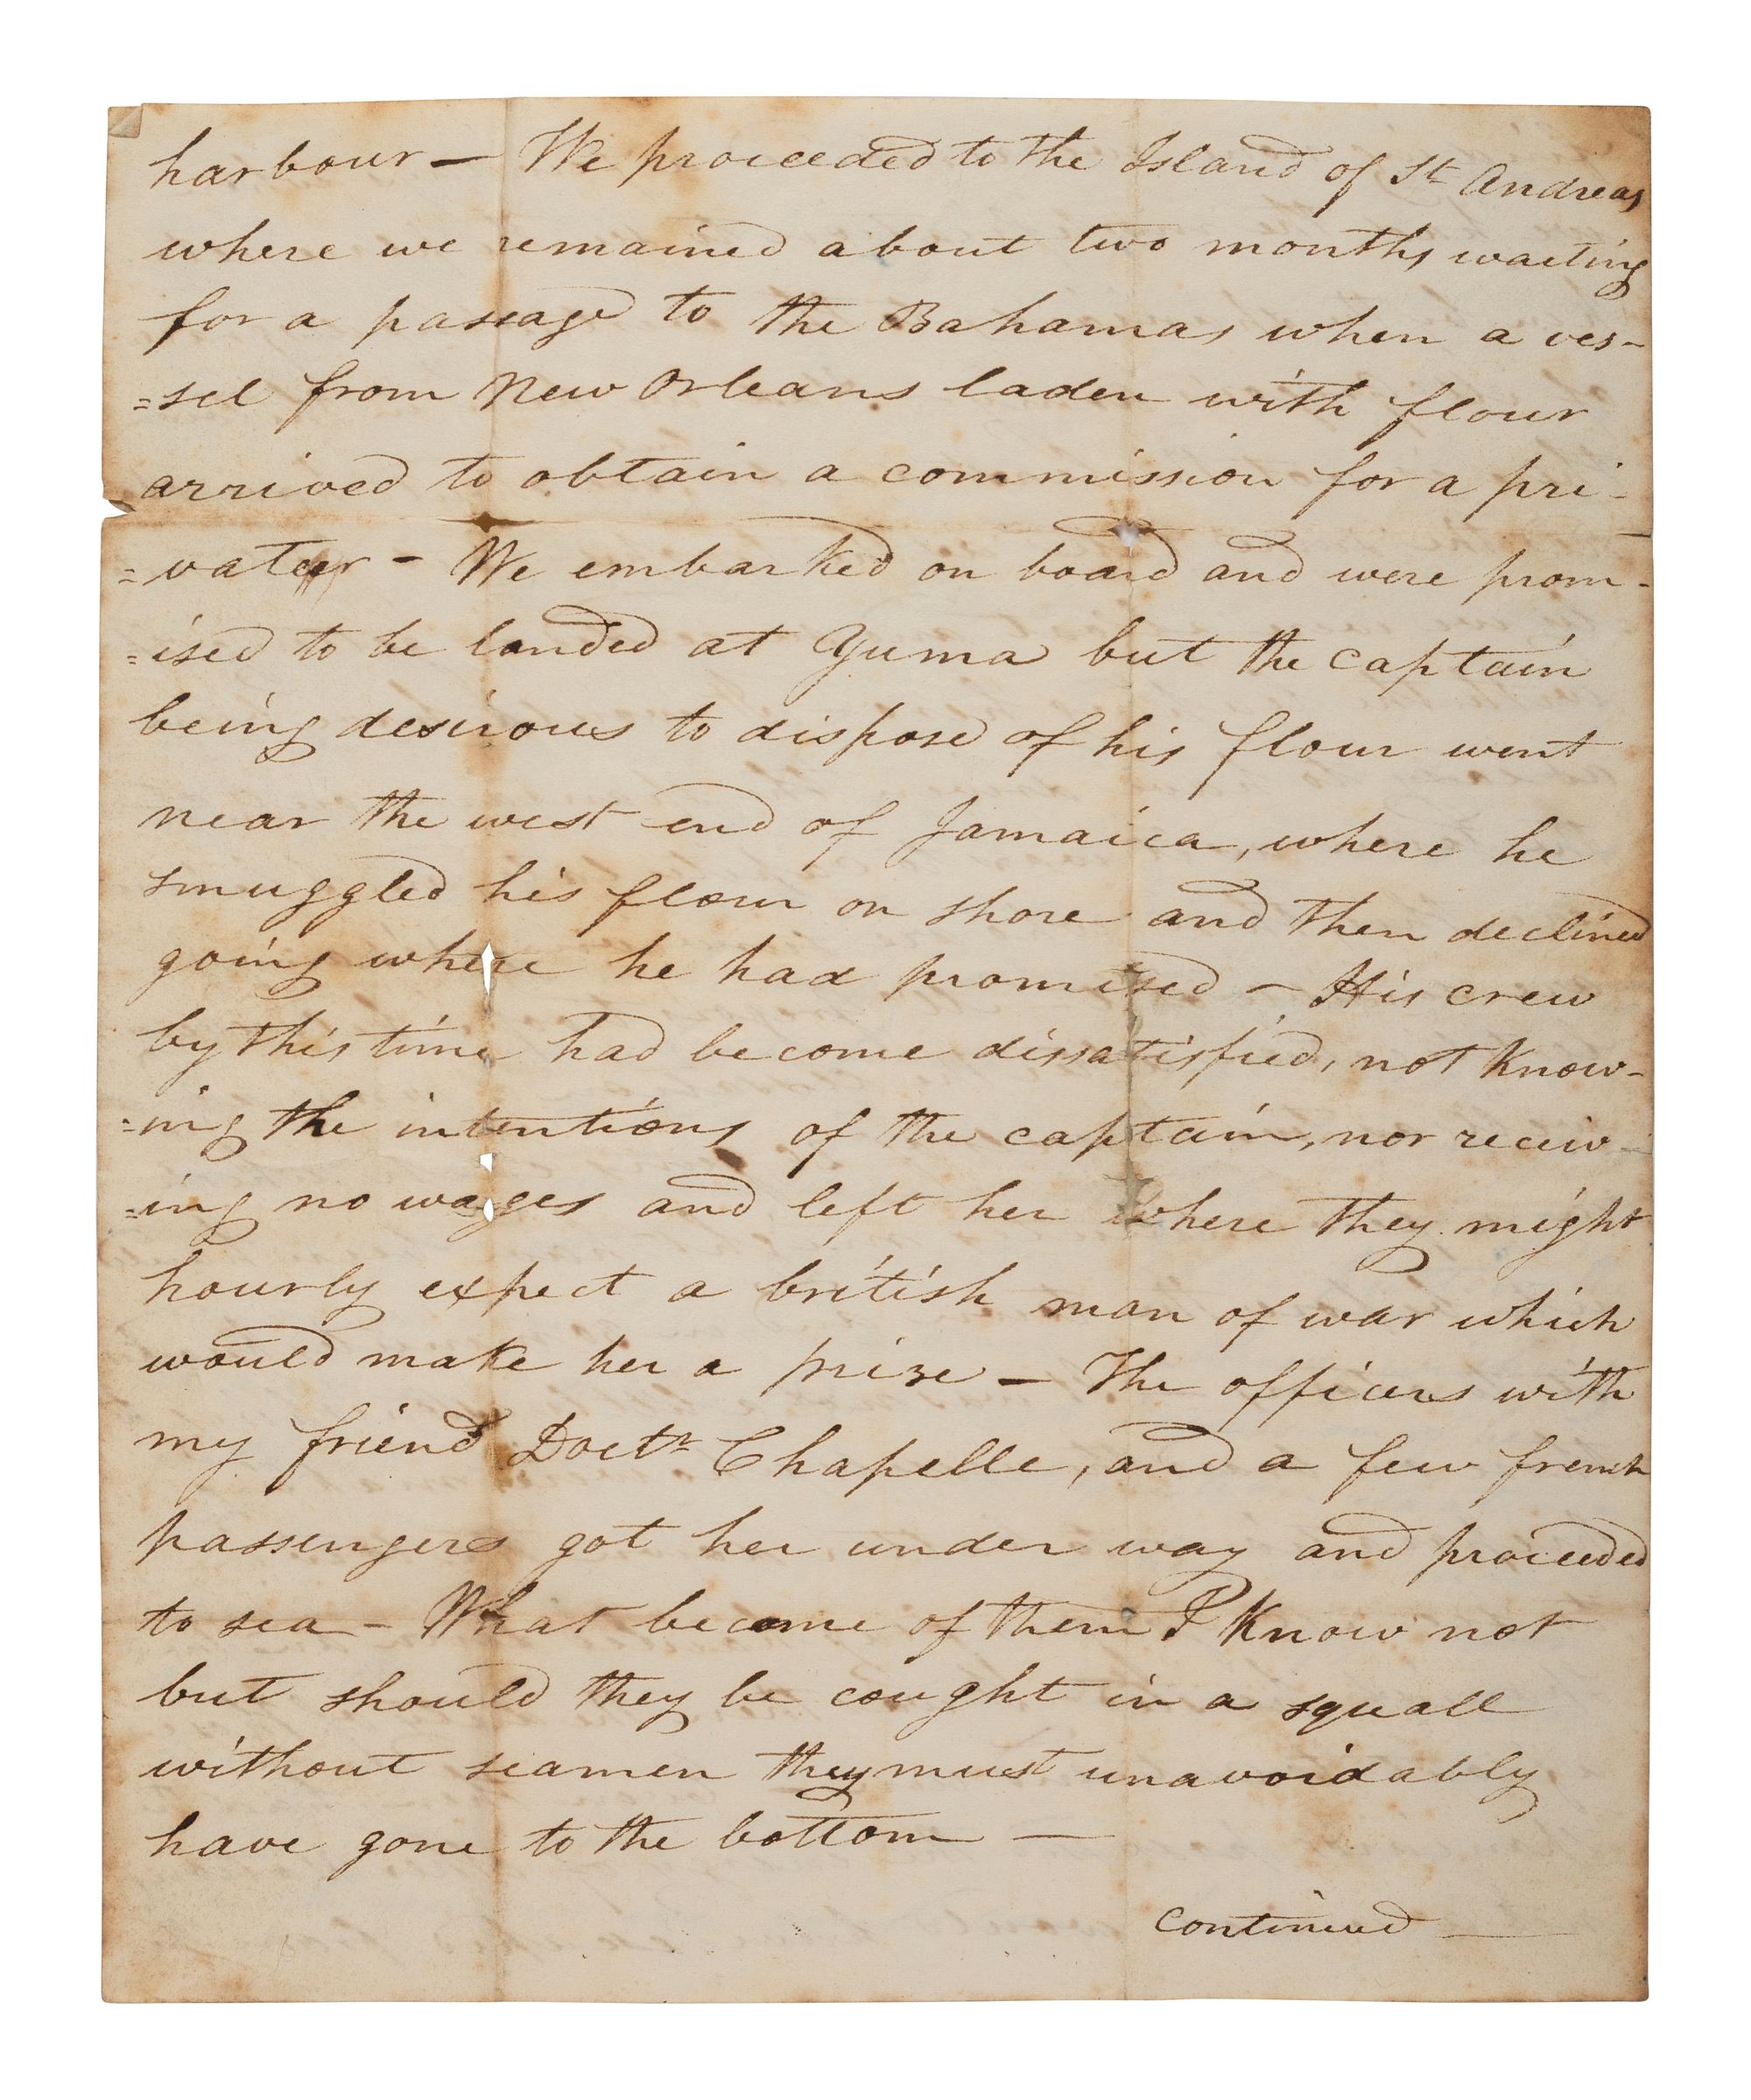 harbour — We proceeded to the Island of St Andreas
where we remained about two months waiting
for a passage to the Bahamas when a ves-
=sel from New Orleans laden with flour
arrived to obtain a commission for a pri-
=vateer - We embarked on board and were prom-
=ised to be landed at Yuma but the captain
being desirous to dispose of his flour went
near the west end of Jamaica, where he
smuggled his flour on shore and then declined
going where he had promised - His crew
by this time had become dissatisfied, not know-
=ing the intentions of the captain, nor receiv-
=ing no wages and left her where they might
hourly expect a british man of war which
would make her a prize — The officers with
my friend Doctr Chapelle, and a few french
passengers got her under way and proceeded
to sea - What become of them I know not
but should they be cought in a squall
without seamen they must unavoidably
have gone to the bottom —
continued —